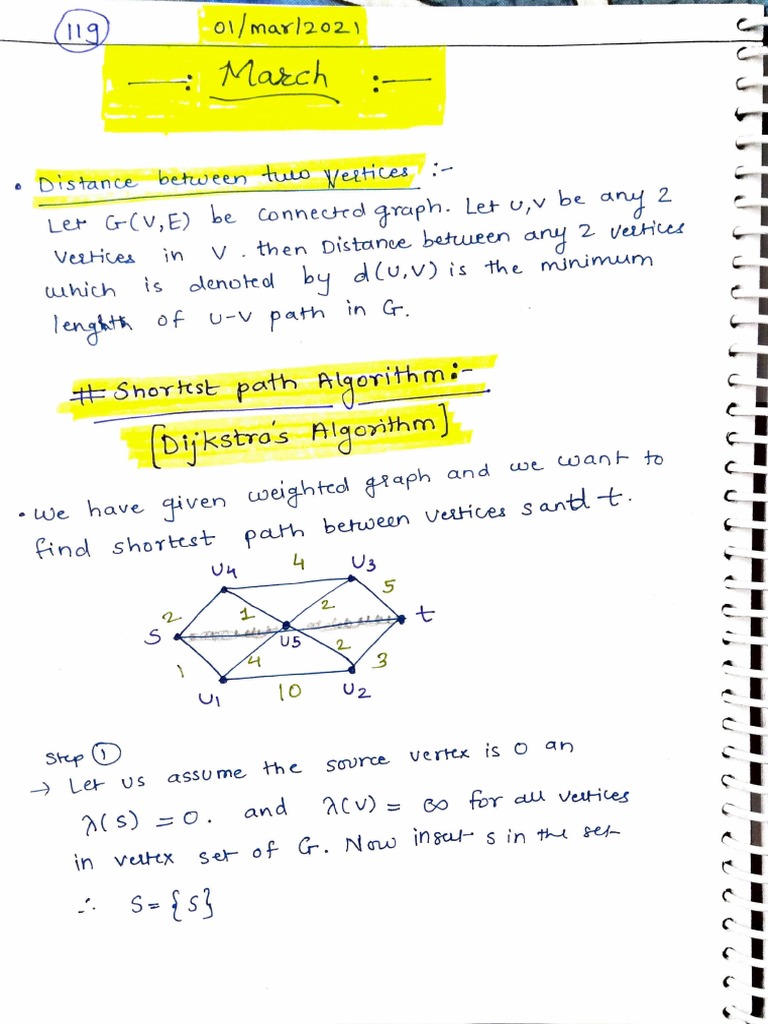 119
01/mar/2021
—: March :—
• Distance between two Vertices :-
Let G(V,E) be connected graph. Let u,v be any 2
vertices in V. then Distance between any 2 vertices
which is denoted by d(u,v) is the minimum
length of u-v path in G.
# Shortest path Algorithm:-
[Dijkstra's Algorithm]
• We have given weighted graph and we want to
find shortest path between vertices s and t.
U4 4 U3
2 1 2 5
S U5 t
1 4 2 3
U1 10 U2
Step ①
→ Let us assume the source vertex is 0 an
λ(s) = 0. and λ(v) = ∞ for all vertices
in vertex set of G. Now insert s in the set
∴ S = {s}